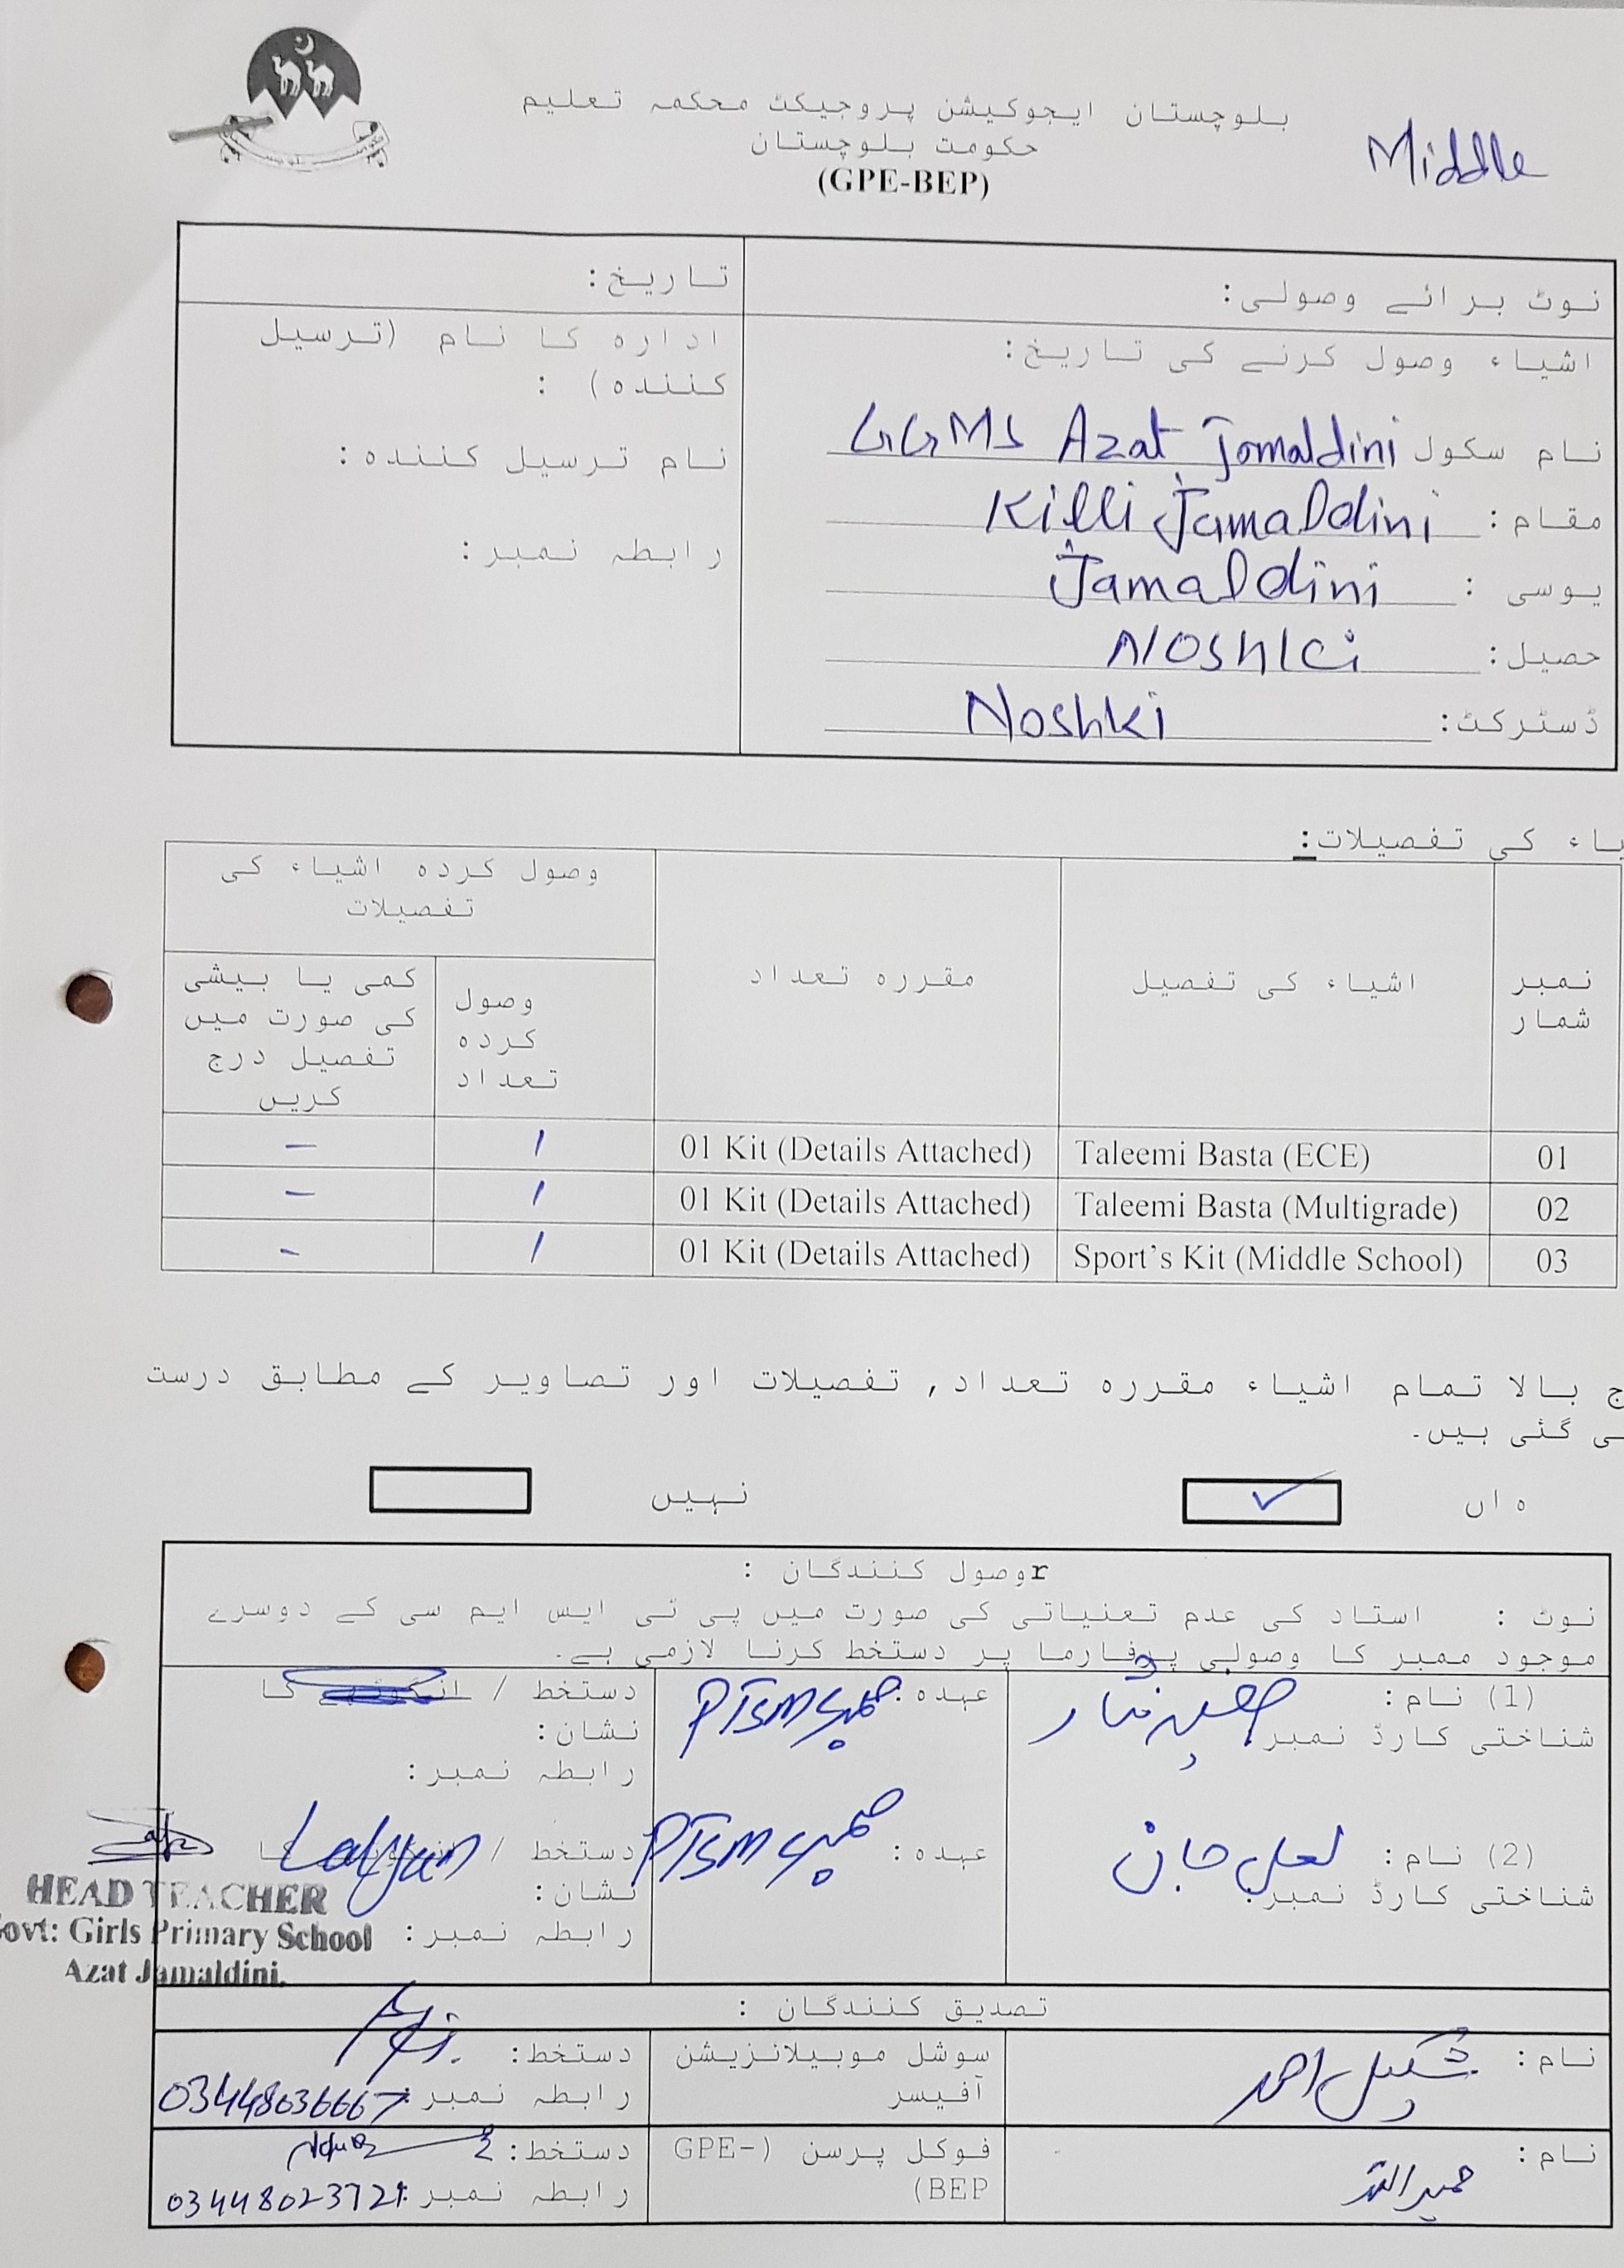 بلوچستان ایجوکیشن پروجیکٹ محکمہ تعلیم
حکومت بلوچستان
(GPE-BEP)
Middle
نوٹ برائے وصولی:
تاریخ:
اشیاء وصول کرنے کی تاریخ:
نام سکول GGMS Azat Jamaldini
مقام: Killi Jamaldini
یوسی : Jamaldini
حصیل: Noshki
ڈسٹرکٹ: Noshki
ادارہ کا نام (ترسیل
کنندہ) :
نام ترسیل کنندہ:
رابطہ نمبر:
یاء کی تفصیلات:
نمبر شمار
اشیاء کی تفصیل
مقررہ تعداد
وصول کردہ اشیاء کی
تفصیلات
وصول
کردہ
تعداد
کمی یا بیشی
کی صورت میں
تفصیل درج
کریں
01 Taleemi Basta (ECE) 01 Kit (Details Attached) 1 –
02 Taleemi Basta (Multigrade) 01 Kit (Details Attached) 1 –
03 Sport's Kit (Middle School) 01 Kit (Details Attached) 1 -
ج بالا تمام اشیاء مقررہ تعداد, تفصیلات اور تصاویر کے مطابق درست
ی گئی ہیں۔
ہاں ✓ نہیں
rوصول کنندگان :
نوٹ : استاد کی عدم تعنیاتی کی صورت میں پی ٹی ایس ایم سی کے دوسرے
موجود ممبر کا وصولی پرفارما پر دستخط کرنا لازمی ہے۔
(1) نام:
شناختی کارڈ نمبر
عہدہ: ممبر PTSM
دستخط / انگوٹھے کا
نشان:
رابطہ نمبر:
(2) نام: لعل جان
شناختی کارڈ نمبر:
عہدہ: ممبر PTSM
دستخط / کا Laljan
نشان:
رابطہ نمبر:
HEAD TEACHER
ovt: Girls Primary School
Azat Jamaldini.
تصدیق کنندگان :
نام: شکیل احمد
سوشل موبیلائزیشن
آفیسر
دستخط:
رابطہ نمبر: 03448036667
نام: حمید اللہ
فوکل پرسن (GPE-
BEP)
دستخط:
رابطہ نمبر: 03448023721